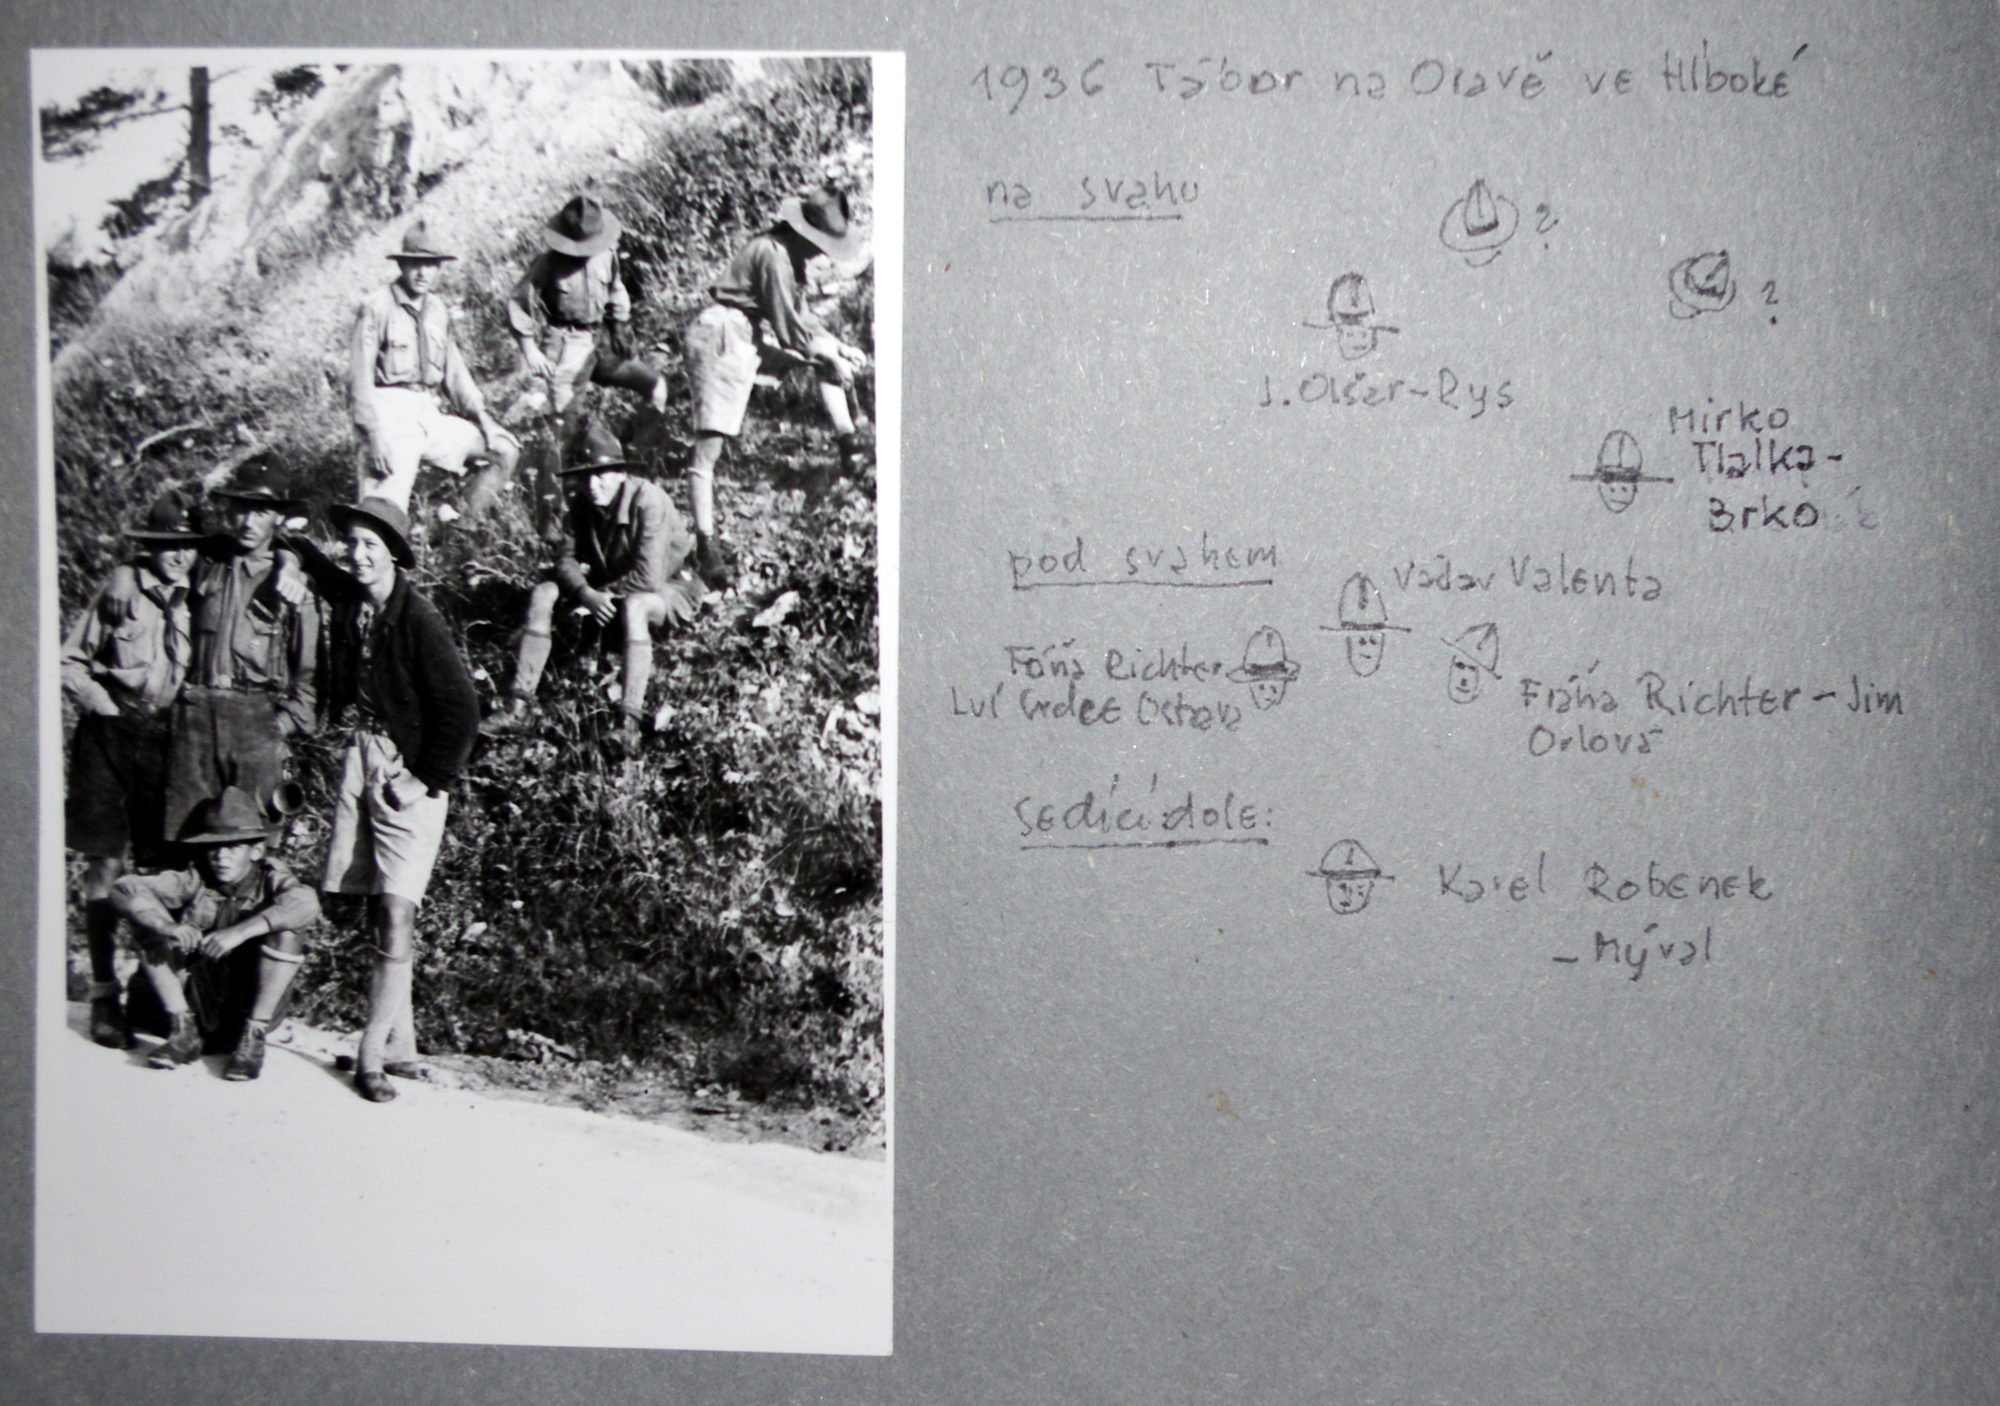 1936 Tábor na Oravě ve Hlboké
na svahu
?
?
J. Olšar-Rys
Mirko
Tlalka-
Brko
pod svahem
Václav Valenta
Richter
Lví Srdce Ostrava
Fráňa Richter - Jim
Orlová
sedící dole:
Karel Robenek
- Mýval